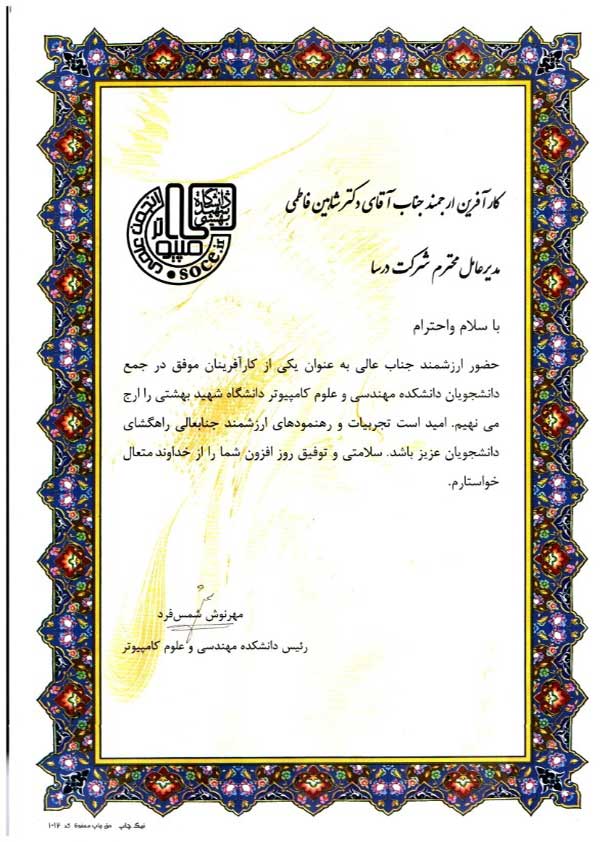 دانشگاه
شهید
بهشتی
کامپیوتر
soce.ir
کارآفرین ارجمند جناب آقای دکتر شاهین فاطمی
مدیرعامل محترم شرکت درسا
با سلام واحترام
حضور ارزشمند جناب عالی به عنوان یکی از کارآفرینان موفق در جمع
دانشجویان دانشکده مهندسی و علوم کامپیوتر دانشگاه شهید بهشتی را ارج
می نهیم. امید است تجربیات و رهنمودهای ارزشمند جنابعالی راهگشای
دانشجویان عزیز باشد. سلامتی و توفیق روز افزون شما را از خداوند متعال
خواستارم.
مهرنوش شمس‌فرد
رئیس دانشکده مهندسی و علوم کامپیوتر
نیک چاپ حق چاپ محفوظ کد ۱۰۱۲